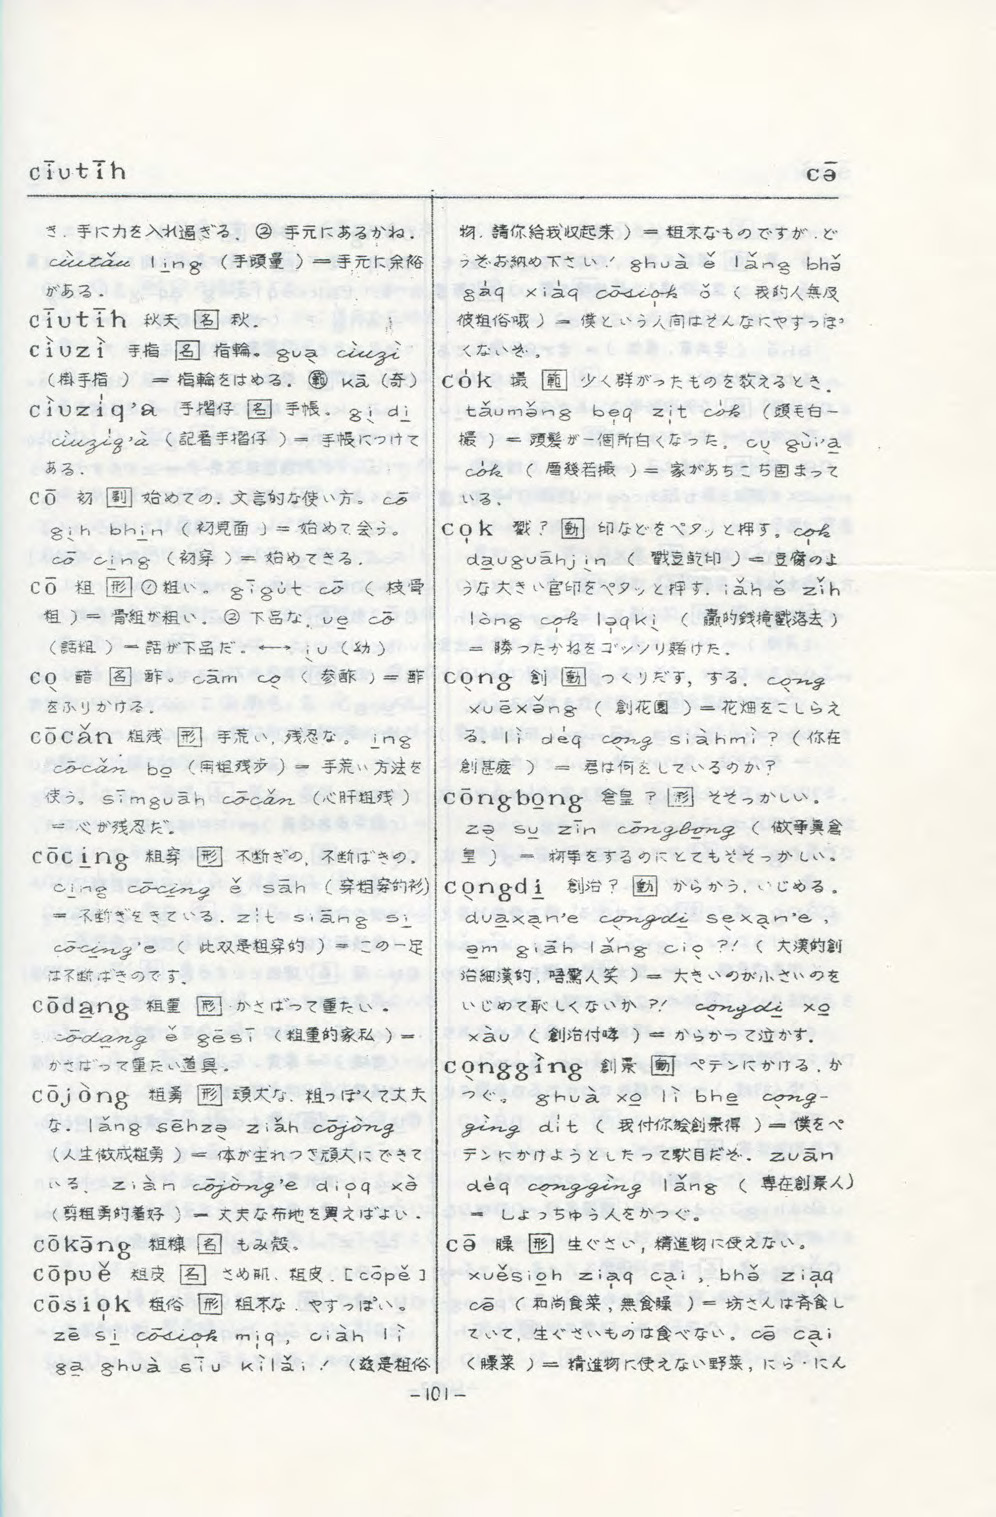 cīutīh
cə̄
き.手に力を入れ過ぎる. ② 手元にあるかね.
ciùtǎu li̱ng (手頭量) = 手元に余裕
がある.
cīutīh 秋天 [名] 秋.
ciùzì 手指 [名] 指輪。 gua̱ ciùzì
= 指輪をはめる. kā (奇)
ciùzi̍q'à 手摺仔 [名] 手帳. gì di̱
ciùzi̍q'à (記着手摺仔) = 手帳につけて
ある.
cō 初 [副] 始めての.文言的な使い方。 cō
gìh bhi̱n (初見面) = 始めて会う。
cō ci̱ng (初穿) = 始めてきる.
cō 粗 [形] ①粗い。 gīgùt cō (枝骨
粗) = 骨組が粗い. ② 下品な. u̱e cō
(話粗) = 話が下品だ. ←→ iù (幼)
co̱ 醋 [名] 酢。 cām co̱ (参酢) = 酢
をふりかける.
cōcǎn 粗残 [形] 手荒い,残忍な。 i̱ng
cōcǎn bo̱ (用粗残步) = 手荒い方法を
使う。 sīmguāh cōcǎn (心肝粗残)
= 心が残忍だ。
cōci̱ng 粗穿 [形] 不断ぎの,不断ばきの.
ci̱ng cōci̱ng ě sāh (穿粗穿的衫)
= 不断ぎをきている. zi̍t siāng si̱
cōci̱ng'e (此双是粗穿的) = この一足
は不断ばきのです.
cōda̱ng 粗重 [形] かさばって重たい.
cōda̱ng ě gēsī (粗重的家私) =
かさばって重たい道具.
cōjòng 粗勇 [形] 頑丈な.粗っぽくて丈夫
な. lǎng sēhzə̌ ziǎh cōjòng
(人生做成粗勇) = 体が生れつき頑丈にできて
いる. ziàn cōjòng'e di̍oq xə̀
(剪粗勇的着好) = 丈夫な布地を買えばよい.
cōkə̄ng 粗糠 [名] もみ殻。
cōpuě 粗皮 [名] さめ肌.粗皮. [cōpě]
cōsio̍k 粗俗 [形] 粗末な.やすっぽい。
zē si̱ cōsio̍k mi̍q, ciàh lì
ga̱ ghuà sīu kìlǎi ! (茲是粗俗
物.請你給我収起来) = 粗末なものですが.ど
うぞお納め下さい! ghuà ě lǎng bhə̌
gáq xiáq cōsio̍k ǒ (我的人無及
彼粗俗哦) = 僕という人間はそんなにやすっぽ
くないぞ.
cók 撮 [範] 少く群がったものを数えるとき.
tǎumə̌ng be̍q zi̍t cók (頭毛白一
撮) = 頭髪が一個所白くなった。 cu̱ gùi'a̱
cók (厝幾若撮) = 家があちこち固まって
いる.
co̍k 戳? [動] 印などをペタッと押す。 co̍k
da̱uguāhji̱n (戳荳乾印) = 豆腐のよ
うな大きい官印をペタッと押す. iǎh ě zǐh
lòng co̍k lə̍qki (贏的銭攏戳落去)
= 勝ったかねをゴッソリ賭けた.
co̱ng 創 [動] つくりだす, する. co̱ng
xuēxə̌ng (創花園) = 花畑をこしらえ
る。 lì déq co̱ng siàhmì? (你在
創甚麼) = 君は何をしているのか?
cōngbo̱ng 倉皇? [形] そそっかしい。
zə̱ su̱ zīn cōngbo̱ng (做事真倉
皇) = 物事をするのにとてもそそっかしい。
co̱ngdi̱ 創治? [動] からかう.いじめる。
dua̱xa̱n'e co̱ngdi̱ se̱xa̱n'e,
ə̱m giāh lǎng cio̱ ?! (大漢的創
治細漢的,唔驚人笑) = 大きいのが小さいのを
いじめて恥しくないか?! co̱ngdi̱ xo̱
xàu (創治付哮) = からかって泣かす.
co̱nggìng 創景 [動] ペテンにかける.か
つぐ。 ghuà xo̱ lì bhe̱ co̱ng-
gìng dit (我付你
創景得) = 僕をペ
テンにかけようとしたって駄目だぞ. zuān
déq co̱nggìng lǎng (専在創景人)
= しょっちゅう人をかつぐ。
cə̄ 臊 [形] 生ぐさい,精進物に使えない。
xuěsio̱h zia̍q ca̱i, bhə̌ zia̍q
cə̄ (和尚食菜,無食臊) = 坊さんは斉食し
ていて,生ぐさいものは食べない。 cə̄ ca̱i
(臊菜) = 精進物に使えない野菜,にら・にん
-101-